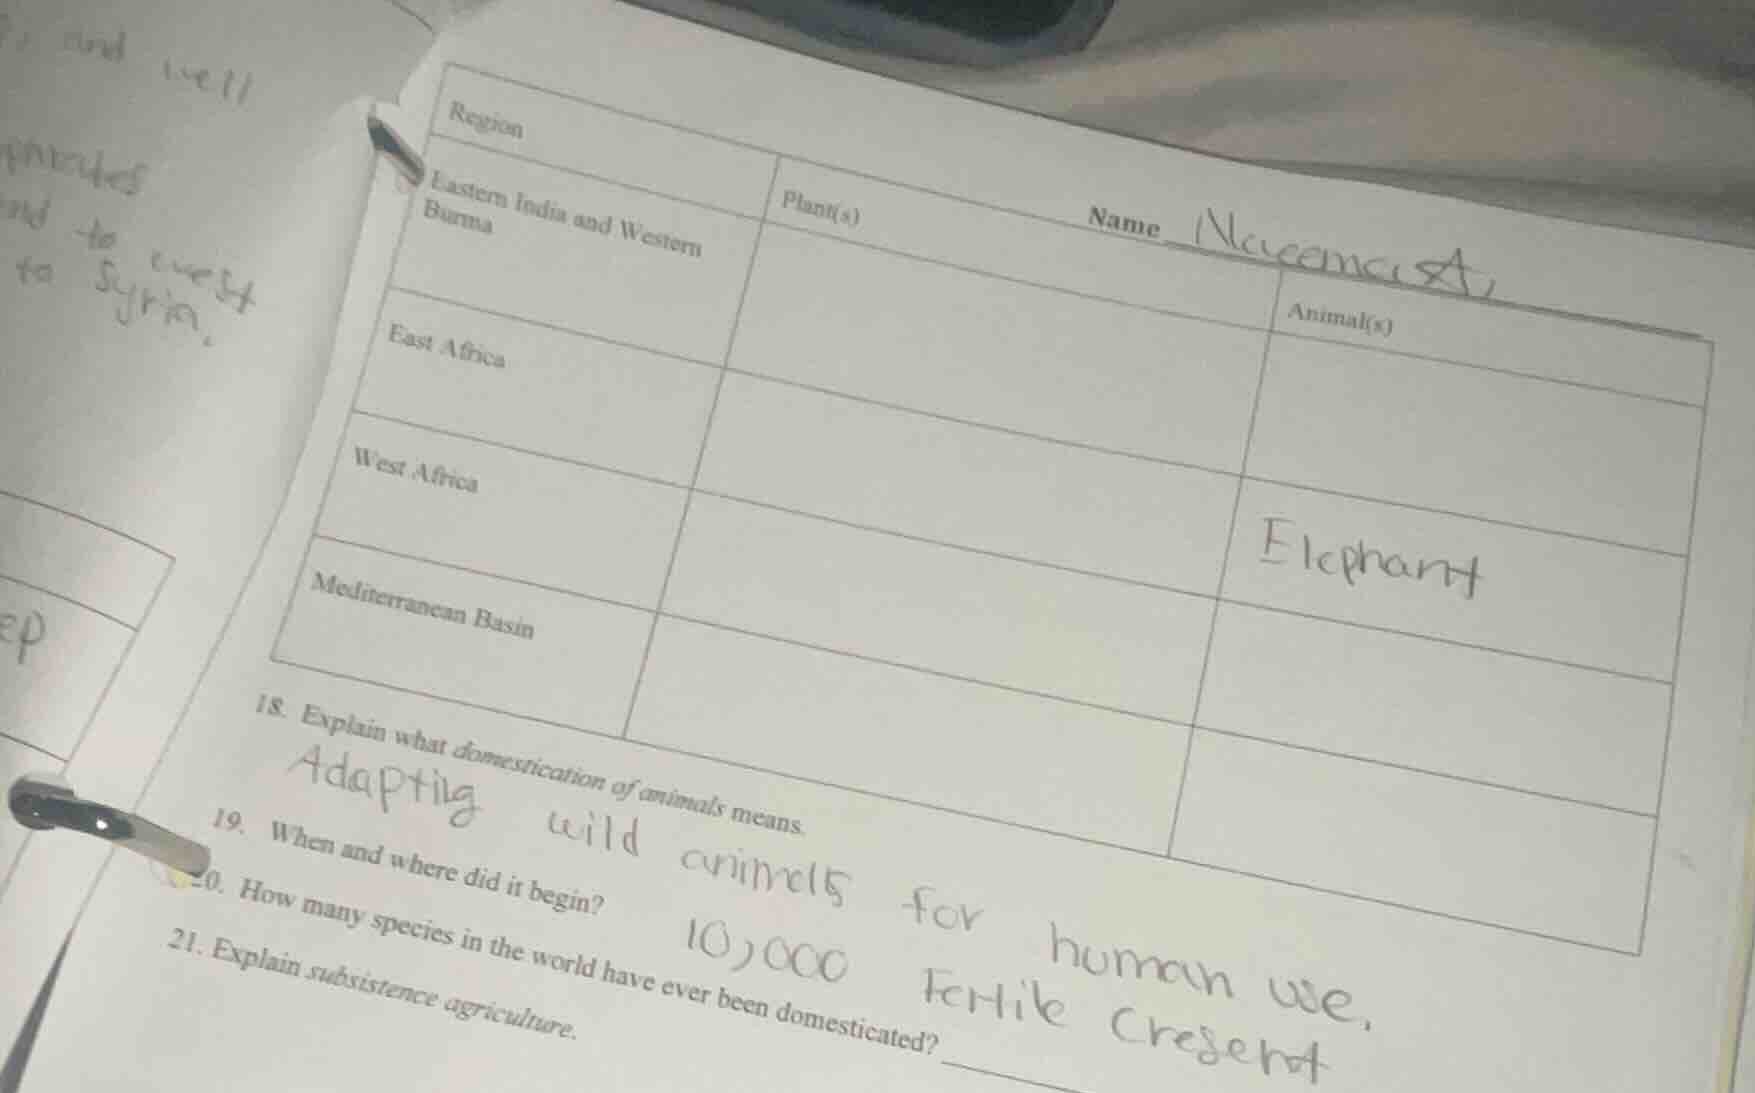 , and well
and to west
to Syria.
ep
Name Naeema A.
Region
Plant(s)
Animal(s)
Eastern India and Western
Burma
East Africa
Elephant
West Africa
Mediterranean Basin
18. Explain what domestication of animals means.
Adapting wild animals for human use.
19. When and where did it begin? 10,000 Fertile Cresent
20. How many species in the world have ever been domesticated?
21. Explain subsistence agriculture.